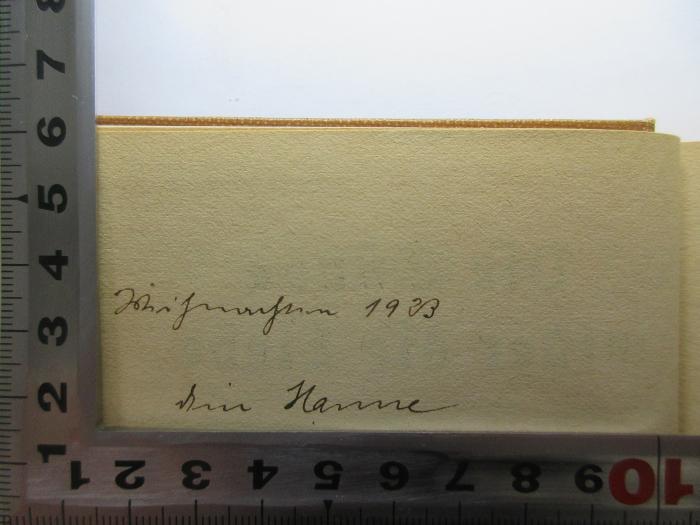 8
7
6
5
4
3
2
1
Weihnachten 1933
Dein Hanne
1 2 3 4 5 6 7 8 9 10